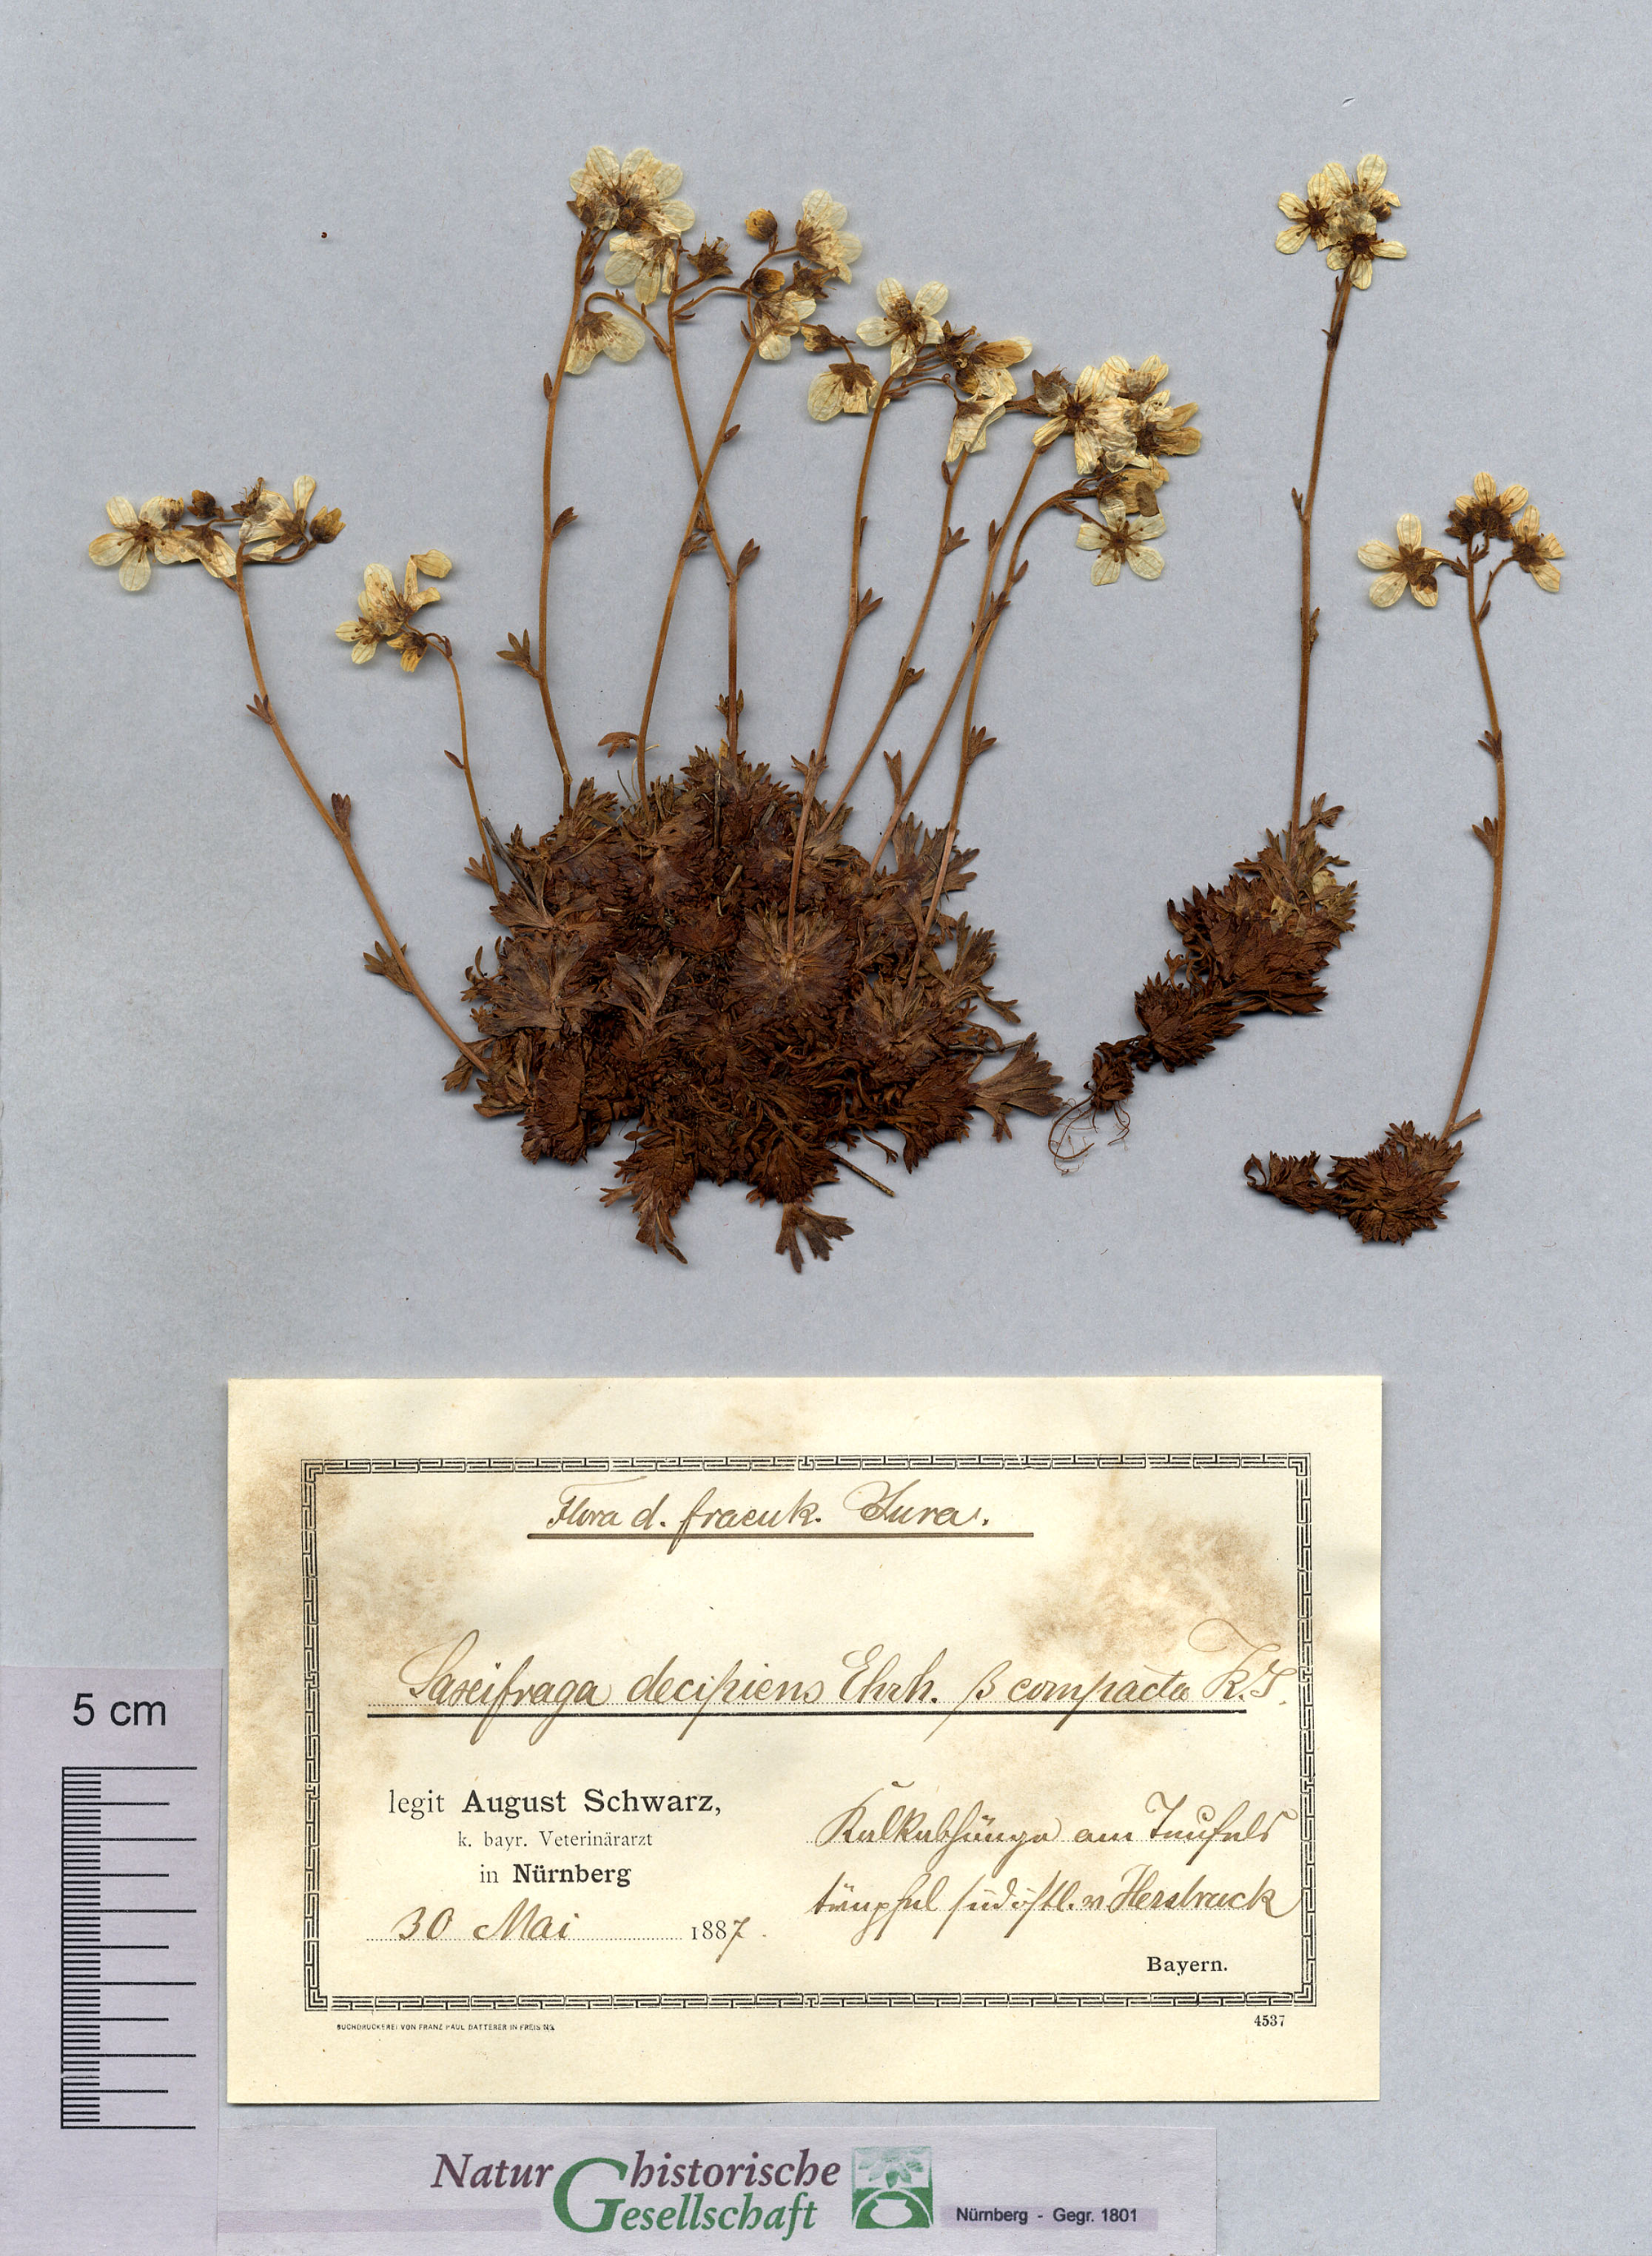 Flora d. fraenk. Jura.
Saxifraga decipiens Ehrh. β compacta K.S.
legit August Schwarz,
k. bayr. Veterinärarzt
in Nürnberg
30 Mai 1887.
Kalkabhänge am Teufels
tümpfel südöstl. v Hersbruck
Bayern.
BUCHDRUCKEREI VON FRANZ PAUL DATTERER IN FREISING
4537
5 cm
Natur historische
Gesellschaft
Nürnberg - Gegr. 1801